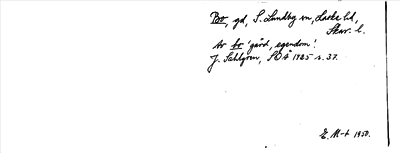 Bo, gd, S. Lundby sn, Laske hd,
Skar. l.
Av bo 'gård, egendom'.
J. Sahlgren, SOÅ 1925 s. 37.
E. M-t 1950.